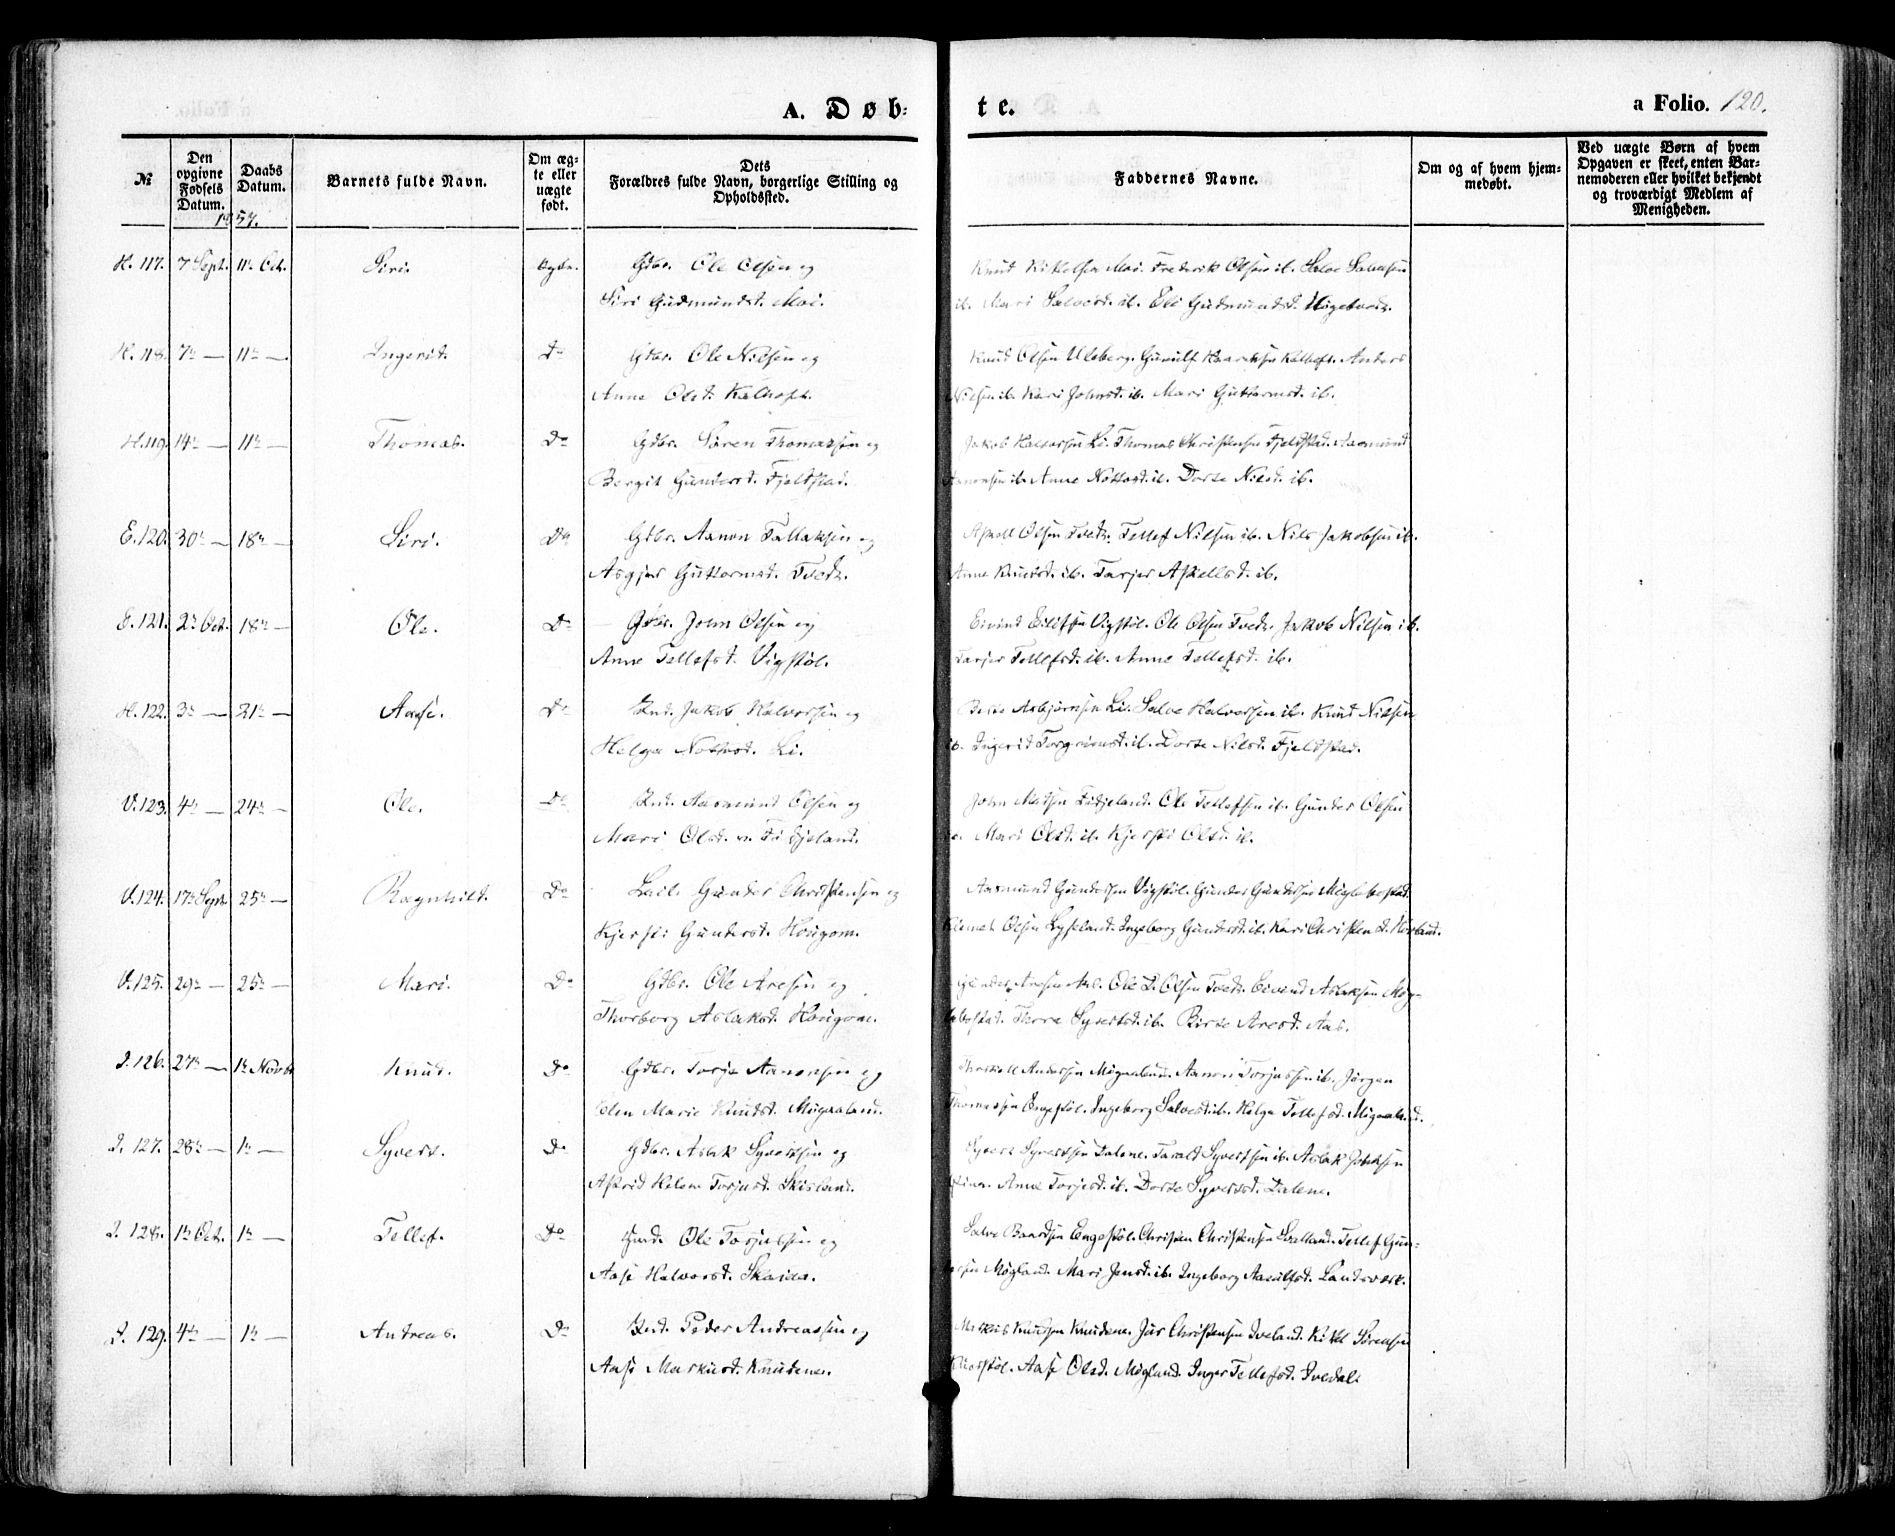 A. Døb-
te.
a Folio. 120.
№
Den opgivne Fødsels Datum.
Daabs Datum.
1857.
Barnets fulde Navn.
Om ægte eller uægte født.
Dets Forældres fulde Navn, borgerlige Stilling og Opholdssted.
Faddernes Navne.
Om og af hvem hjemmedøbt.
Ved uægte Børn af hvem Opgaven er skeet, enten Barnemoderen eller hvilket bekjendt og troværdigt Medlem af Menigheden.
H. 117. 7 Sept. 11te Oct. Siri. Gdbr. Ole Olsen og
Siri Gudmundsd. Moi.
Frederik Olsen ib. Salve
ib. Mari Salvesd. ib. Eli Gudmundsd.
H. 118. 7de — 11te — Ingerid. Do Gdbr. Ole Nilsen og
Anne Olsd. Kalhoft.
Knud Olsen Uleberg. Kalhoft. Anders
Nilsen ib. Kari Johnsd. ib. Mari Guttormsd. ib.
H. 119. 14de — 11te — Thomas. Do Gdbr. Søren Thomassen og
Bergit Gundersd. Fjeldstad.
Jakob Halvorsen Li. Thomas Christensen Fjeldstad. Aasmund
Aanonsen ib. Anne ib. Dorte Nilsd. ib.
E. 120. 30te — 18de — Siri. Do Gdbr. Aanon Tallaksen og
Asgjer Guttormsd. Tvedt.
Askell Olsen Tvedt. Tellef Nilsen ib. Nils Jakobsen ib.
Anne Knudsd. ib. Tarjer Askellsd. ib.
E. 121. 2de Oct. 18de — Ole. Do Gdbr. John Olsen og
Anne Tellefsd. Vigstøl.
Eivind Eilifsen Vigstøl. Ole Olsen Tvedt. Jakob Nilsen ib.
Tarjer Tellefsd. ib. Anne Tellefsd. ib.
H. 122. 3de — 21de — Aase. Do Ind. Jakob Halvorsen og
Helga Li.
Asbjørnsen Li. Salve Halvorsen ib. Knud Nilsen
ib. Ingerid Torgrimsd. ib. Dorte Nilsd. Fjeldstad.
V. 123. 4de — 24de — Ole. Do Ind. Aasmund Olsen og
Mari Olsd. Fidjeland.
John Madsen Fidjeland. Ole Tellefsen ib. Gunder Olsen
ib. Mari Olsd. ib. Kjersti Olsd. ib.
V. 124. 17de Sept. 25de — Ragnhild. Do Leil. Gunder Christensen og
Kjersti Gundersd. Hougom.
Aasmund Gundersen Vigstøl. Gunder Gundersen Møglebostad.
Klemet Olsen Lyseland. Ingeborg Gundersd. ib. Kari Christensd.
V. 125. 29de — 25de — Mari. Do Gdbr. Ole Aresen og
Thorborg Aslaksd. Hougom.
Gunder Aresen Aas. Ole Olsen Tvedt. Eivind Aslaksen Møg-
lebostad. Thore Syvertsd. ib. Birte Aresd. Aas.
I. 126. 27de — 1te Novbr. Knud. Do Gdbr. Torje Aanonsen og
Elen Marie Knudsd. Møgaaland.
Andersen Møgaaland. Aanon Torjussen ib. Jørgen
Thomassen Engestøl. Ingeborg Salvesd. ib. Helga Tellefsd. Møgaaland.
I. 127. 28de — 1te — Syvert. Do Gdbr. Aslak Syvertsen og
Astrid Helene Torjusd. Skisland.
Syvert Syvertsen Dalene. Tarald Syvertsen ib. Aslak
Anne Torjesd. ib. Dorte Syvertsd. Dalene.
I. 128. 1te Oct. 1te — Tellef. Do Ole Torjusen og
Aase Halvorsd. Skaiaa.
Salve Baardsen Engestøl. Christen Christensen Tellef Gun-
dersen Møgland. Mari Jensd. ib. Ingeborg Aanulfsd. Landsverk.
I. 129. 4de — 1te — Andreas. Do Ind. Peder Andreassen og
Aase Markusd. Knudene.
Markus Knudsen Knudene. Jur Christensen Iveland. Kittel Sørensen
Aase Olsd. Møgland. Inger Tellefsd. Ivedal.